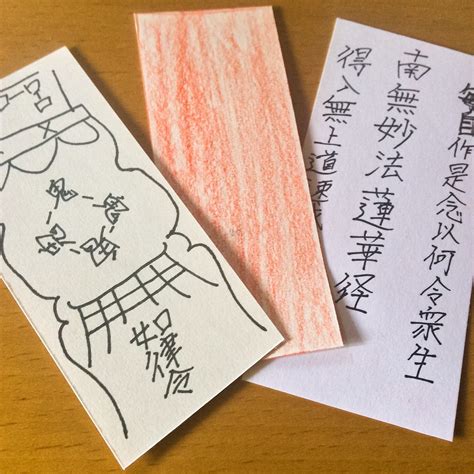 毎自作是念以何令衆生
南無妙法蓮華経
得入無上道速
鬼
鬼
如律令